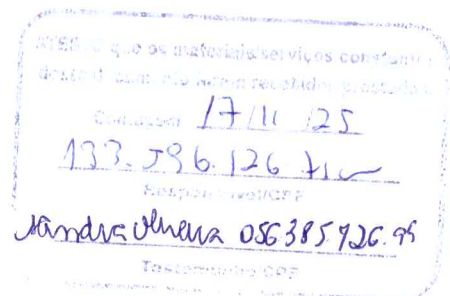 ATESTO que os materiais/serviços constantes
deste documento foram recebidos/prestados
17/11/25
133.596.126
Responsável/CPF
Sandra Oliveira 056385726.99
Testemunha/CPF